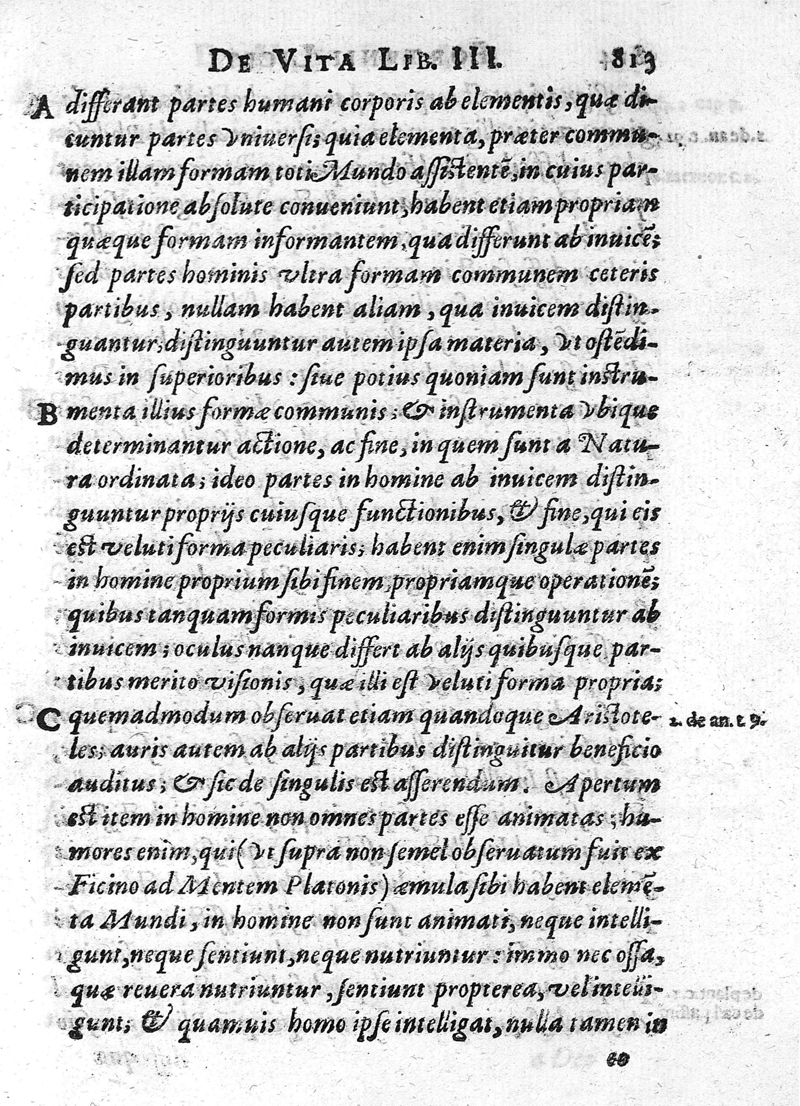 DE VITA LIB. III. 813
A differant partes humani corporis ab elementis, quæ di-
cuntur partes Vniuersi; quia elementa, præter commu-
nem illam formam toti Mundo assistentē, in cuius par-
ticipatione absolute conueniunt, habent etiam propriam
quæque formam informantem, qua differunt ab inuicē;
sed partes hominis vltra formam communem ceteris
partibus, nullam habent aliam, qua inuicem distin-
guantur; distinguuntur autem ipsa materia, Vt ostēdi-
mus in superioribus: siue potius quoniam sunt instru-
B menta illius formæ communis; & instrumenta Vbique
determinantur actione, ac fine, in quem sunt a Natu-
ra ordinata; ideo partes in homine ab inuicem distin-
guuntur proprijs cuiusque functionibus, & fine, qui eis
est veluti forma peculiaris; habent enim singulæ partes
in homine proprium sibi finem, propriamque operationē;
quibus tanquam formis peculiaribus distinguuntur ab
inuicem; oculus nanque differt ab alijs quibusque par-
tibus merito visionis, quæ illi est Veluti forma propria;
C quemadmodum obseruat etiam quandoque Aristote- 2. de an. t 9.
les; auris autem ab alijs partibus distinguitur beneficio
auditus; & sic de singulis est asserendum. Apertum
est item in homine non omnes partes esse animatas; hu-
mores enim, qui (Vt supra non semel obseruatum fuit ex
Ficino ad Mentem Platonis) æmula sibi habent elemē-
ta Mundi, in homine non sunt animati, neque intelli-
gunt, neque sentiunt, neque nutriuntur: immo nec ossa,
quæ reuera nutriuntur, sentiunt propterea, vel intelli-
gunt; & quamuis homo ipse intelligat, nulla tamen in
eo